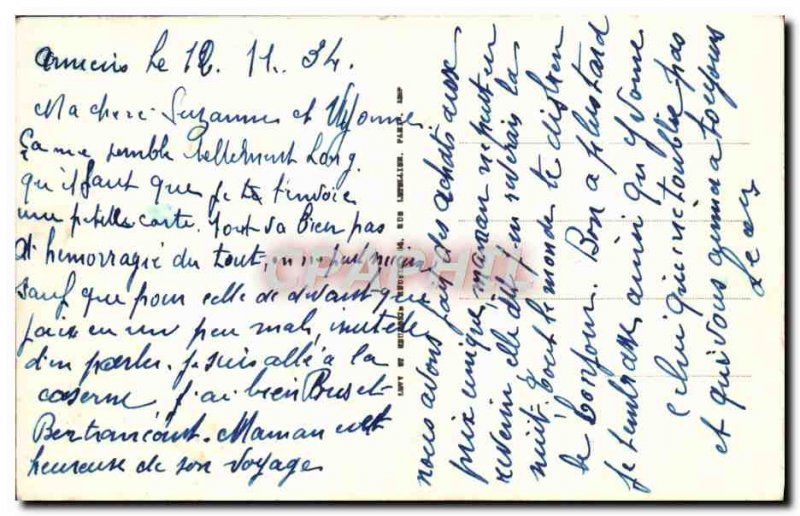 Amiens le 12. 11. 34.
Ma chere Suzanne et Yvonne
Ça me semble tellement long
qu'il faut que je t'envoie
une petite carte. Tout va bien pas
d'hemorragie du tout,
sauf que pour celle de devant que
j'ai eu un peu mal, inutile
d'en parler. Je suis allé à la
caserne j'ai bien
Bertrancourt. Maman est
heureuse de son voyage
nous avons fait des achats aux
prix unique, maman ne peut en
revenir elle dit j'en reverais la
nuit. Tout le monde te dis bien
le bonjour. Bon a plus tard
je t'embrasse ainsi qu'Yvonne
celui qui ne t'oublie pas
et qui vous aimera toujours
Jean
CPAPHIL